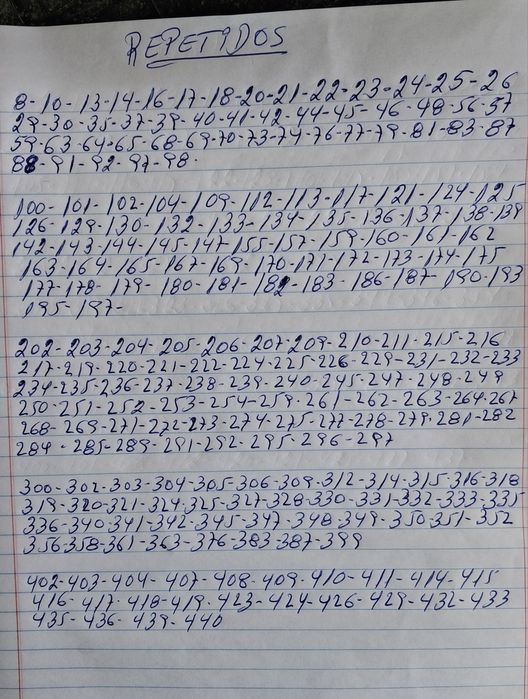 REPETIDOS
8-10-13-14-16-17-18-20-21-22-23-24-25-26
29-30-35-37-39-40-41-42-44-45-46-48-56-57
59-63-64-65-68-69-70-73-74-76-77-79-81-83-87
88-91-92-97-98.
100-101-102-104-109-112-113-117-121-124-125
126-129-130-132-133-134-135-136-137-138-139
142-143-144-145-147-155-157-159-160-161-162
163-164-165-167-169-170-171-172-173-174-175
177-178-179-180-181-182-183-186-187-190-193
195-197-
202-203-204-205-206-207-209-210-211-215-216
217-219-220-221-222-224-225-226-229-231-232-233
234-235-236-237-238-239-240-245-247-248-249
250-251-252-253-254-259-261-262-263-264-267
268-269-271-272-273-274-275-277-278-279-281-282
284-285-289-291-292-295-296-297
300-302-303-304-305-306-309-312-314-315-316-318
319-320-321-324-325-327-328-330-331-332-333-331
336-340-341-342-345-347-348-349-350-351-352
356-358-361-363-376-383-387-399
402-403-404-407-408-409-410-411-414-415
416-417-418-419-423-424-426-429-432-433
435-436-439-440